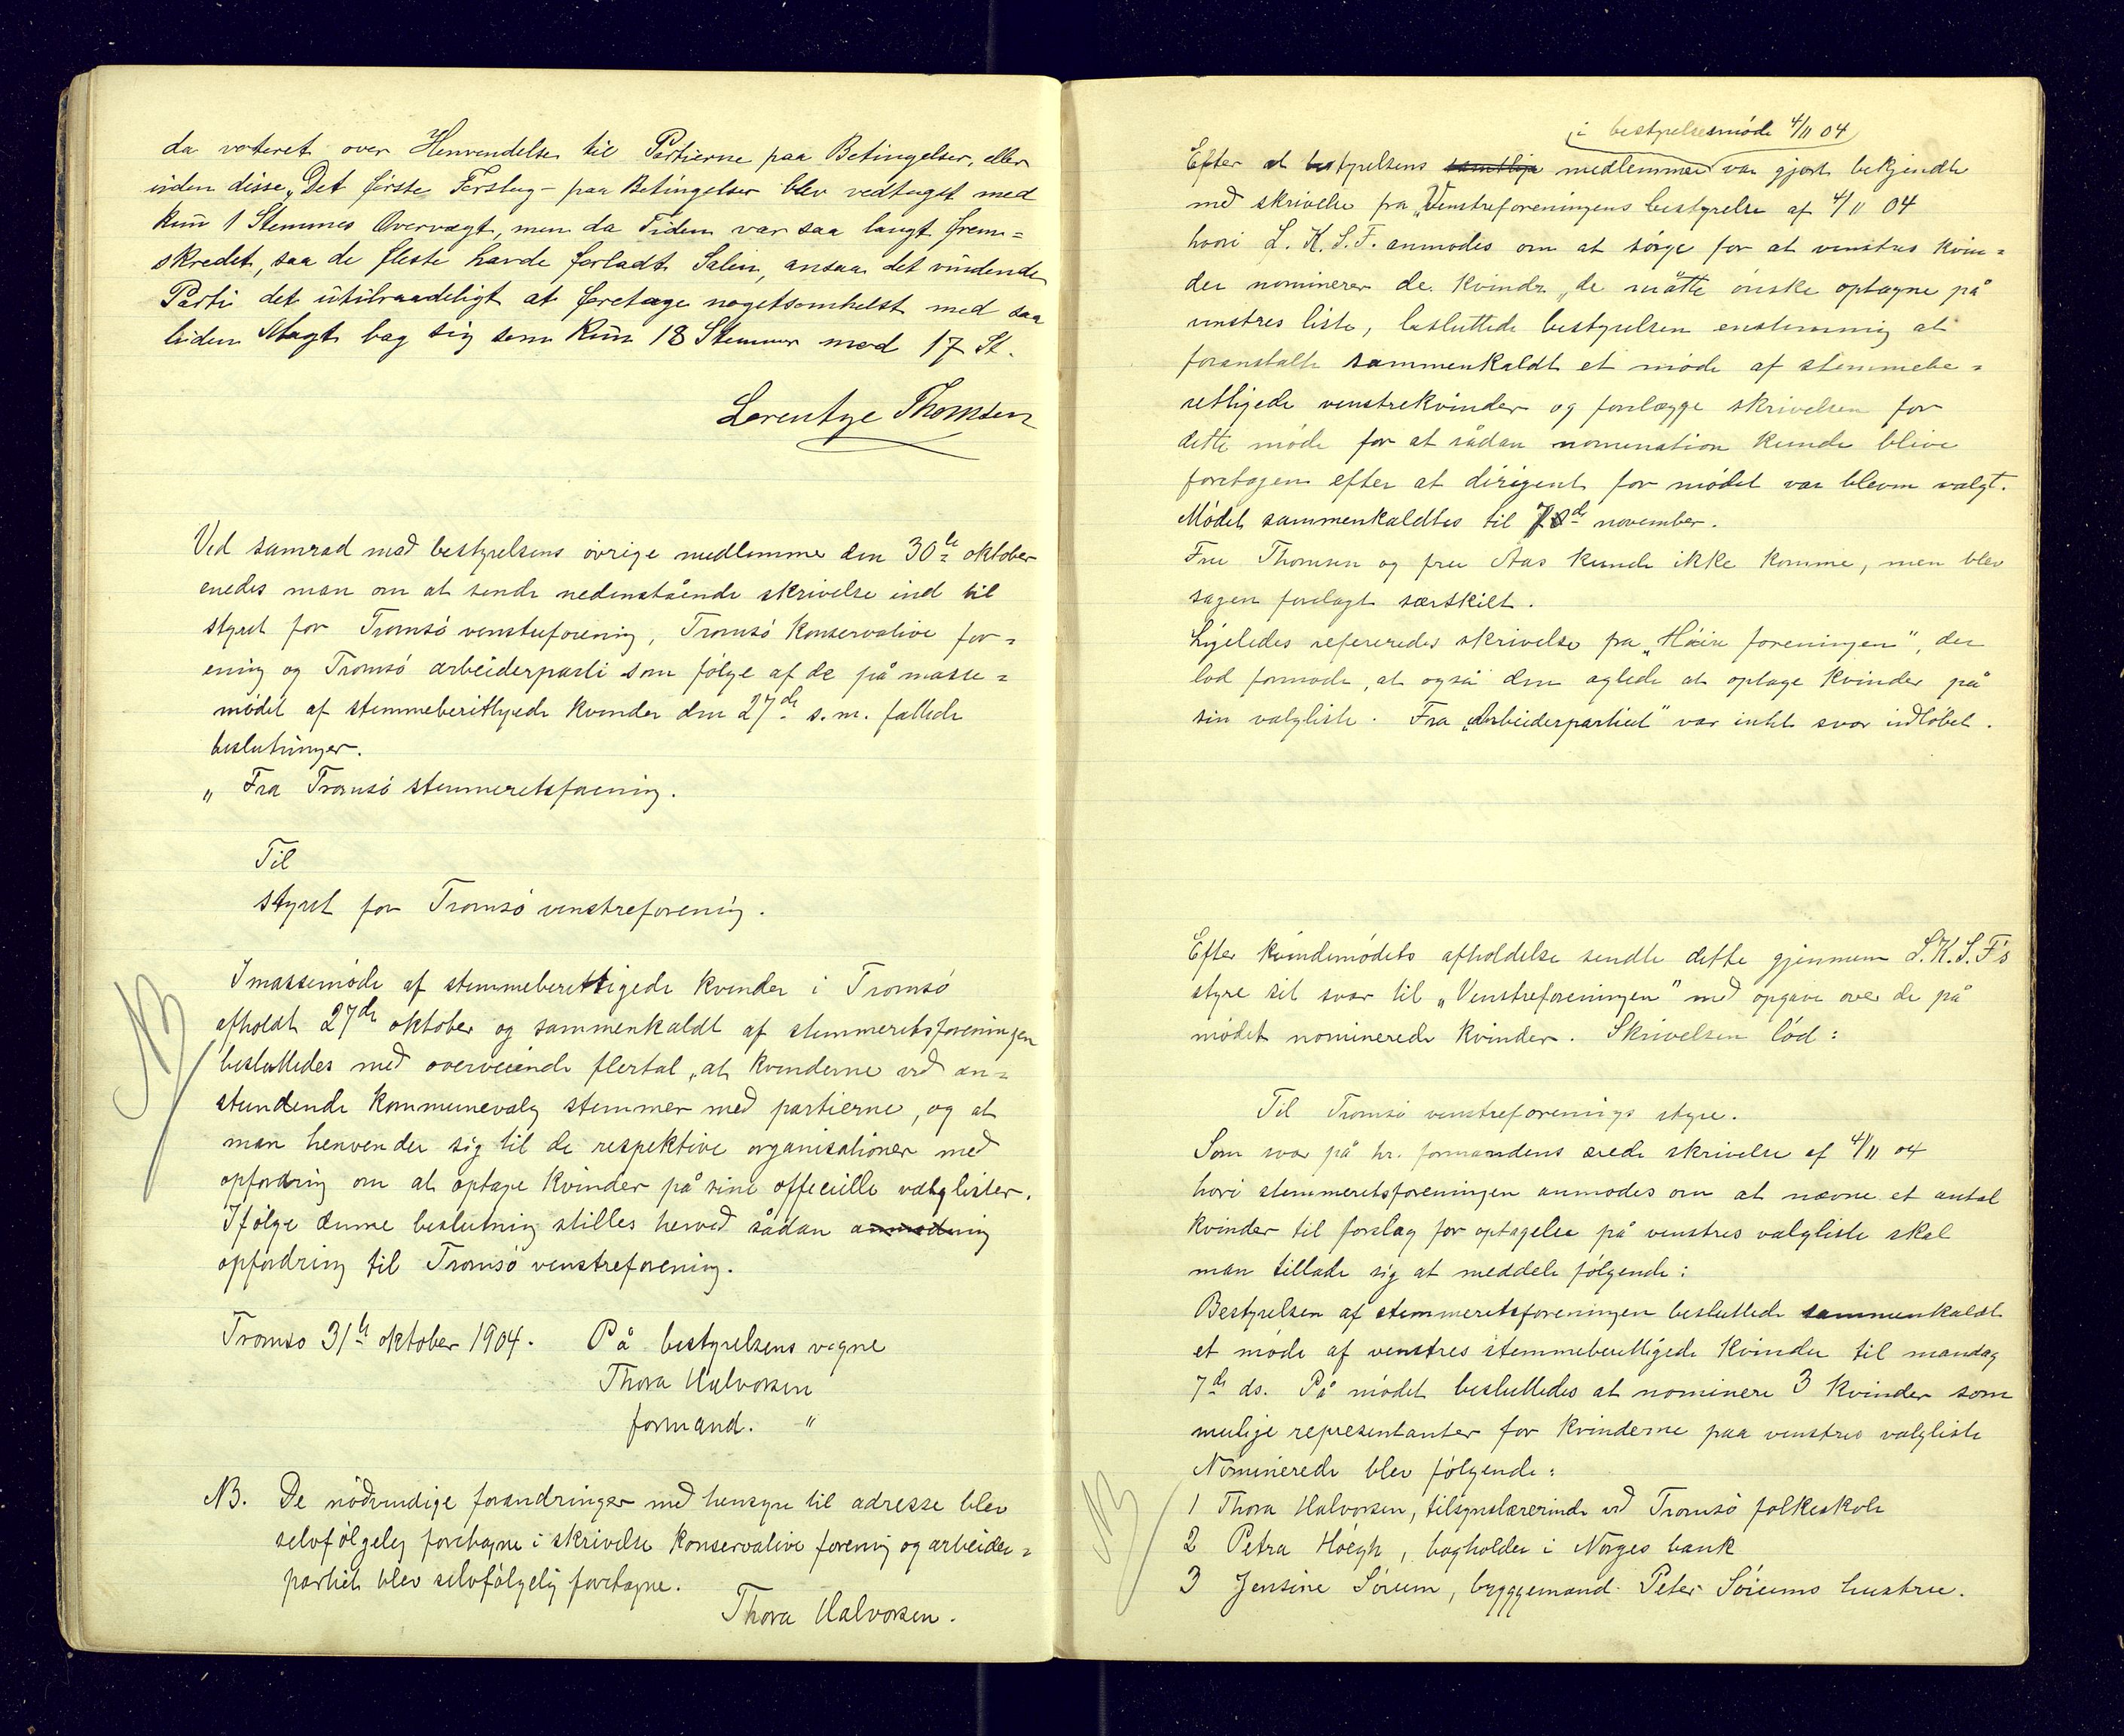 da voteret over Henvendelse til Partierne paa Betingelser, eller
uden disse. Det første Forslag – paa Betingelser blev vedtaget med
kun 1 Stemmes Overvægt, men da Tiden var saa langt frem=
skredet, saa de fleste havde forladt Salen, ansaa det vindende
Parti det utilraadeligt at foretage nogetsomhelst med saa
liden Magt bag sig som kun 18 Stemmer mod 17 St.
Lorentze Thomsen
Ved samråd med bestyrelsens øvrige medlemmer den 30te oktober
enedes man om at sende nedenstående skrivelse ind til
styret for Tromsø venstreforening, Tromsø konservative for=
ening og Tromsø arbeiderparti som følge af de på masse=
mødet af stemmeberettigede kvinder den 27de s.m. fattede
beslutninger.
„ Fra Tromsø stemmeretsforening.
Til
styret for Tromsø venstreforening.
NB
I massemøde af stemmeberettigede kvinder i Tromsø
afholdt 27de oktober og sammenkaldt af stemmeretsforeningen
besluttedes med overveiende flertal „at kvinderne ved an=
stundende kommunevalg stemmer med partierne, og at
man henvender sig til de respektive organisationer med
opfordring om at optage kvinder på sine officielle valglister.
Ifølge denne beslutning stilles herved sådan anmodning
opfordring til Tromsø venstreforening.
Tromsø 31te oktober 1904. På bestyrelsens vegne
Thora Halvorsen
formand. "
NB. De nødvendige forandringer med hensyn til adresse blev
selvfølgelig foretagne i skrivelse konservative forening og arbeider=
partiet blev selvfølgelig foretagne.
Thora Halvorsen.
i bestyrelsesmøde 4/11 04
Efter at bestyrelsens samtlige medlemmer var gjort bekjendte
med skrivelse fra „Venstreforeningens bestyrelse af 4/11 04
hvori L. K. S. F. anmodes om at sørge for at venstres kvin=
der nominerer de kvinder, de måtte ønske optagne på
venstres liste, besluttede bestyrelsen enstemmig at
foranstalte sammenkaldt et møde af stemmebe=
rettigede venstrekvinder og forelægge skrivelsen for
dette møde for at sådan nomination kunde blive
foretagen efter at dirigent for mødet var bleven valgt.
Mødet sammenkaldtes til 7de november.
Fru Thomsen og fru Aas kunde ikke komme, men blev
sagen forelagt særskilt.
Ligeledes refereredes skrivelse fra „Høire foreningen", der
lod formode, at også den agtede at optage kvinder på
sin valgliste. Fra „Arbeiderpartiet" var intet svar indløbet.
Efter kvindemødets afholdelse sendte dette gjennem L.K.S.F's
styre sit svar til „Venstreforeningen" med opgave over de på
mødet nominerede kvinder. Skrivelsen lød:
Til Tromsø venstreforenings styre.
Som svar på hr. formandens ærede skrivelse af 4/11 04
hvori stemmeretsforeningen anmodes om at nævne et antal
kvinder til forslag for optagelse på venstres valgliste skal
man tillade sig at meddele følgende:
Bestyrelsen af stemmeretsforeningen besluttede sammenkaldt
et møde af venstres stemmeberettigede kvinder til mandag
7de ds. På mødet besluttedes at nominere 3 kvinder som
mulige representanter for kvinderne paa venstres valgliste
Nominerede blev følgende:
NB
1 Thora Halvorsen, tilsynslærerinde ved Tromsø folkeskole
2 Petra Høegh, bogholder i Norges bank
3 Jensine Sørum, byggemand Peter Sørums hustru.